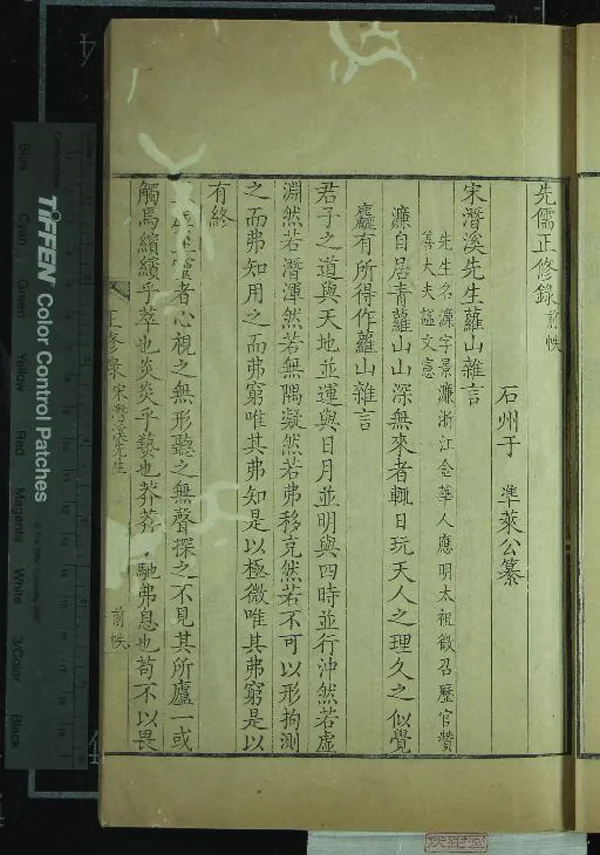 先儒正修錄前帙
石州于 準萊公纂
宋潛溪先生蘿山雜言
先生名濂字景濂浙江金華人應明太祖徵召歷官贊
善大夫謚文憲
濂自居青蘿山山深無來者輒日玩天人之理久之似覺
麤有所得作蘿山雜言
君子之道與天地並運與日月並明與四時並行沖然若虛
淵然若潛渾然若無隅凝然若弗移充然若不可以形拘測
之而弗知用之而弗窮唯其弗知是以極微唯其弗窮是以
有終
靈者心視之無形聽之無聲探之不見其所廬一或
觸焉繽繽乎萃也炎炎乎爇也莽莽馳弗息也苟不以畏
正修錄 宋潛溪先生 前帙
TIFFEN Color Control Patches
Blue Cyan Green Yellow Red Magenta White 3/Color Black